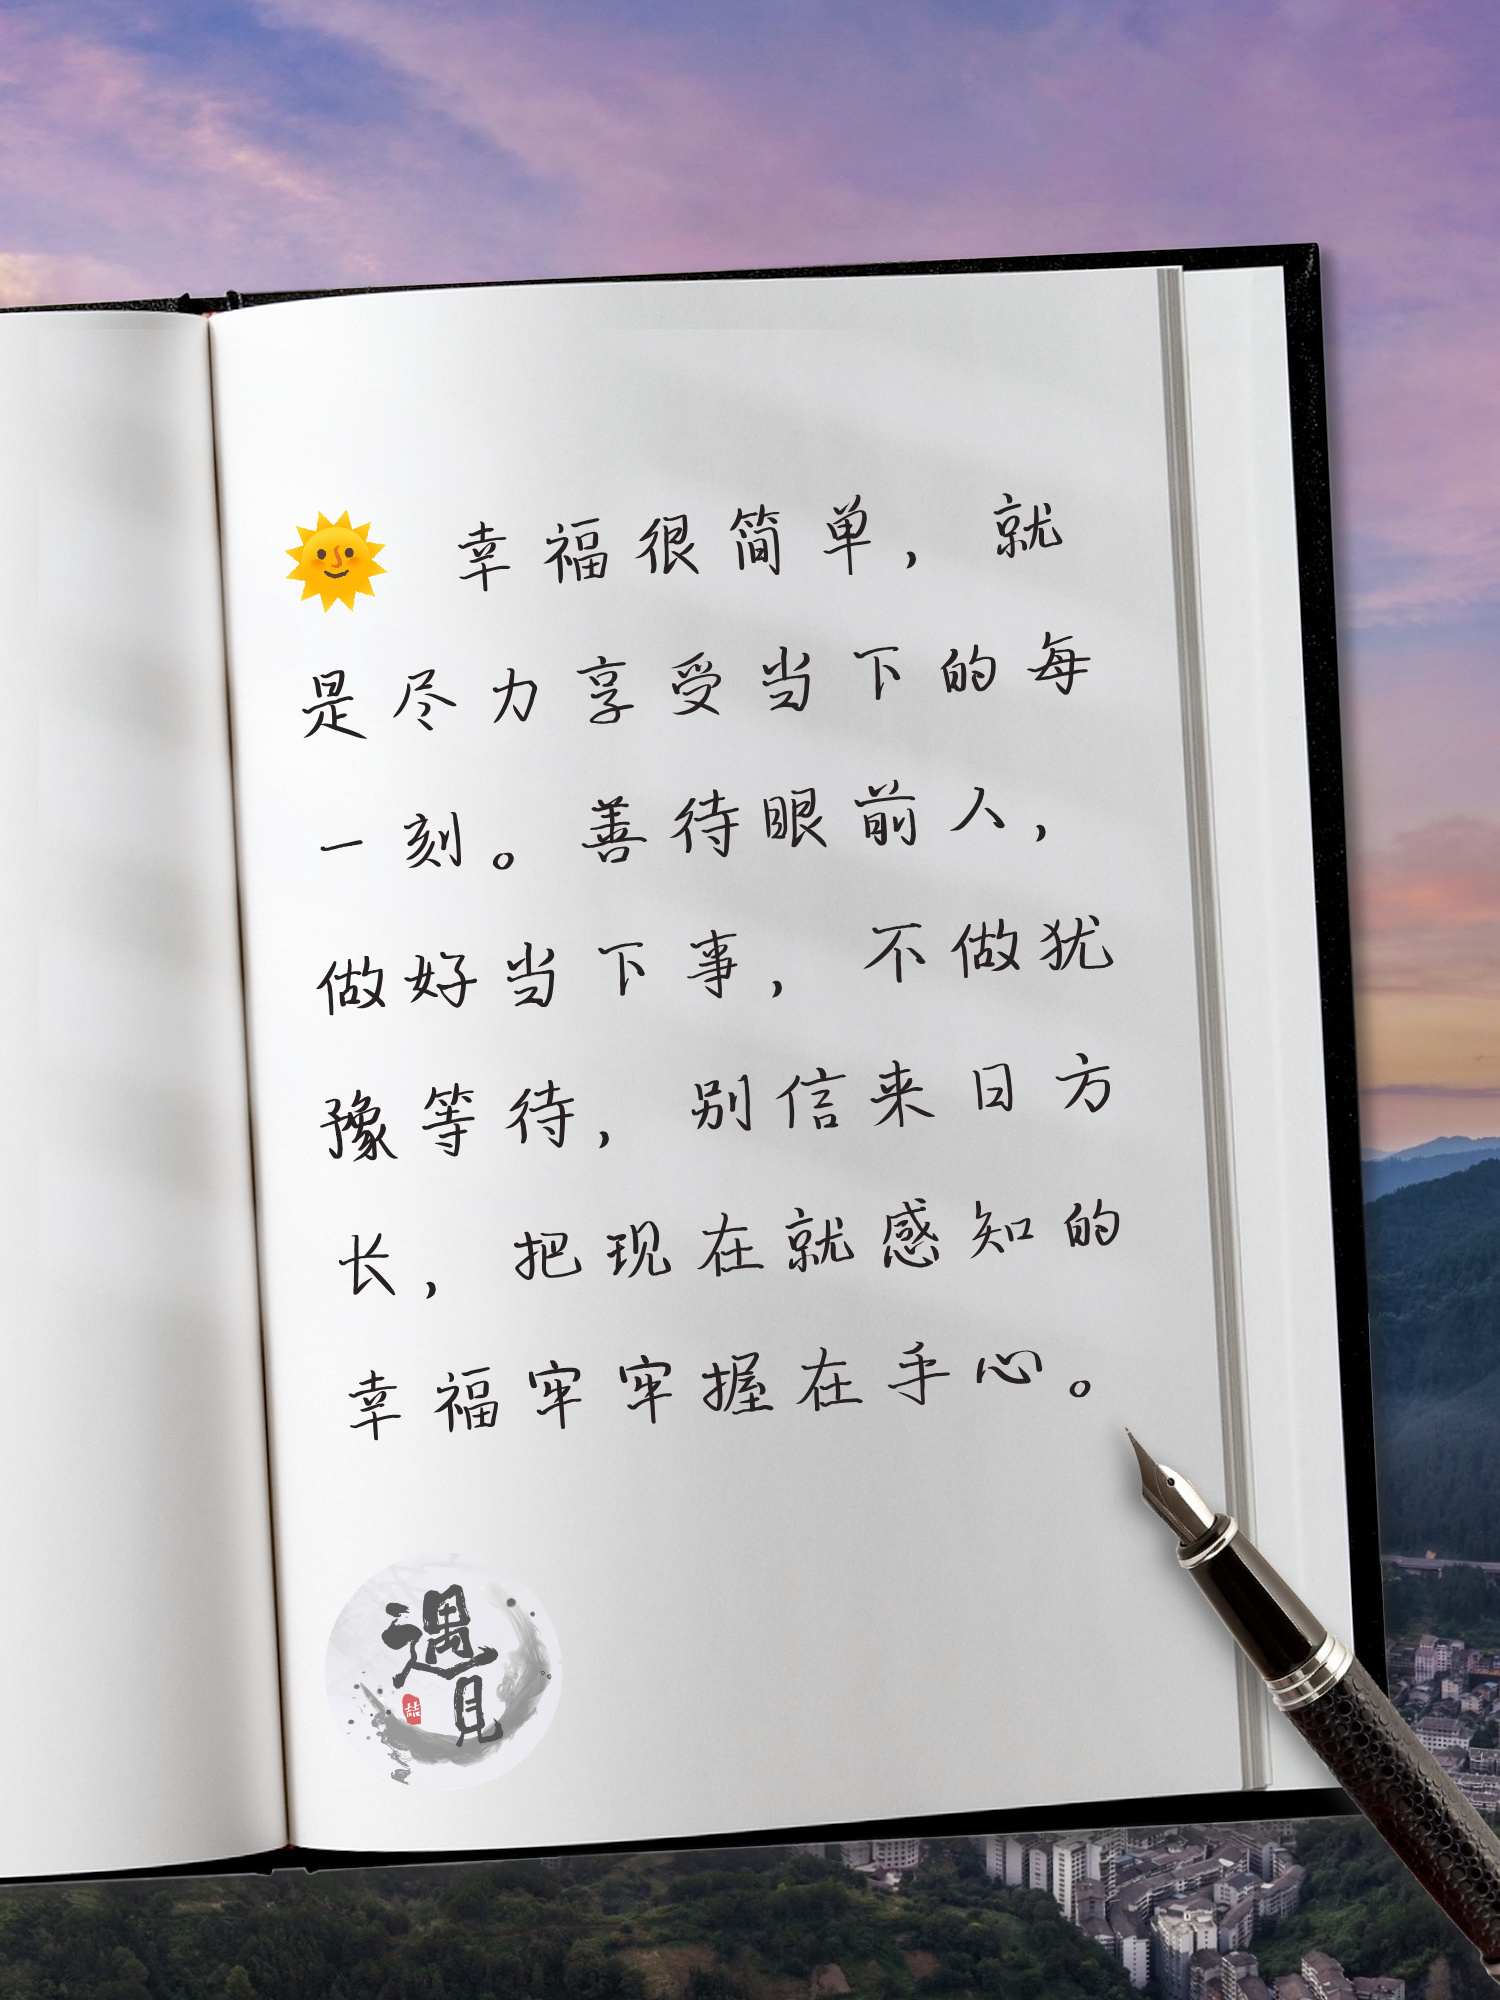 🌞 幸福很简单，就
是尽力享受当下的每
一刻。善待眼前人，
做好当下事，不做犹
豫等待，别信来日方
长，把现在就感知的
幸福牢牢握在手心。
遇
见